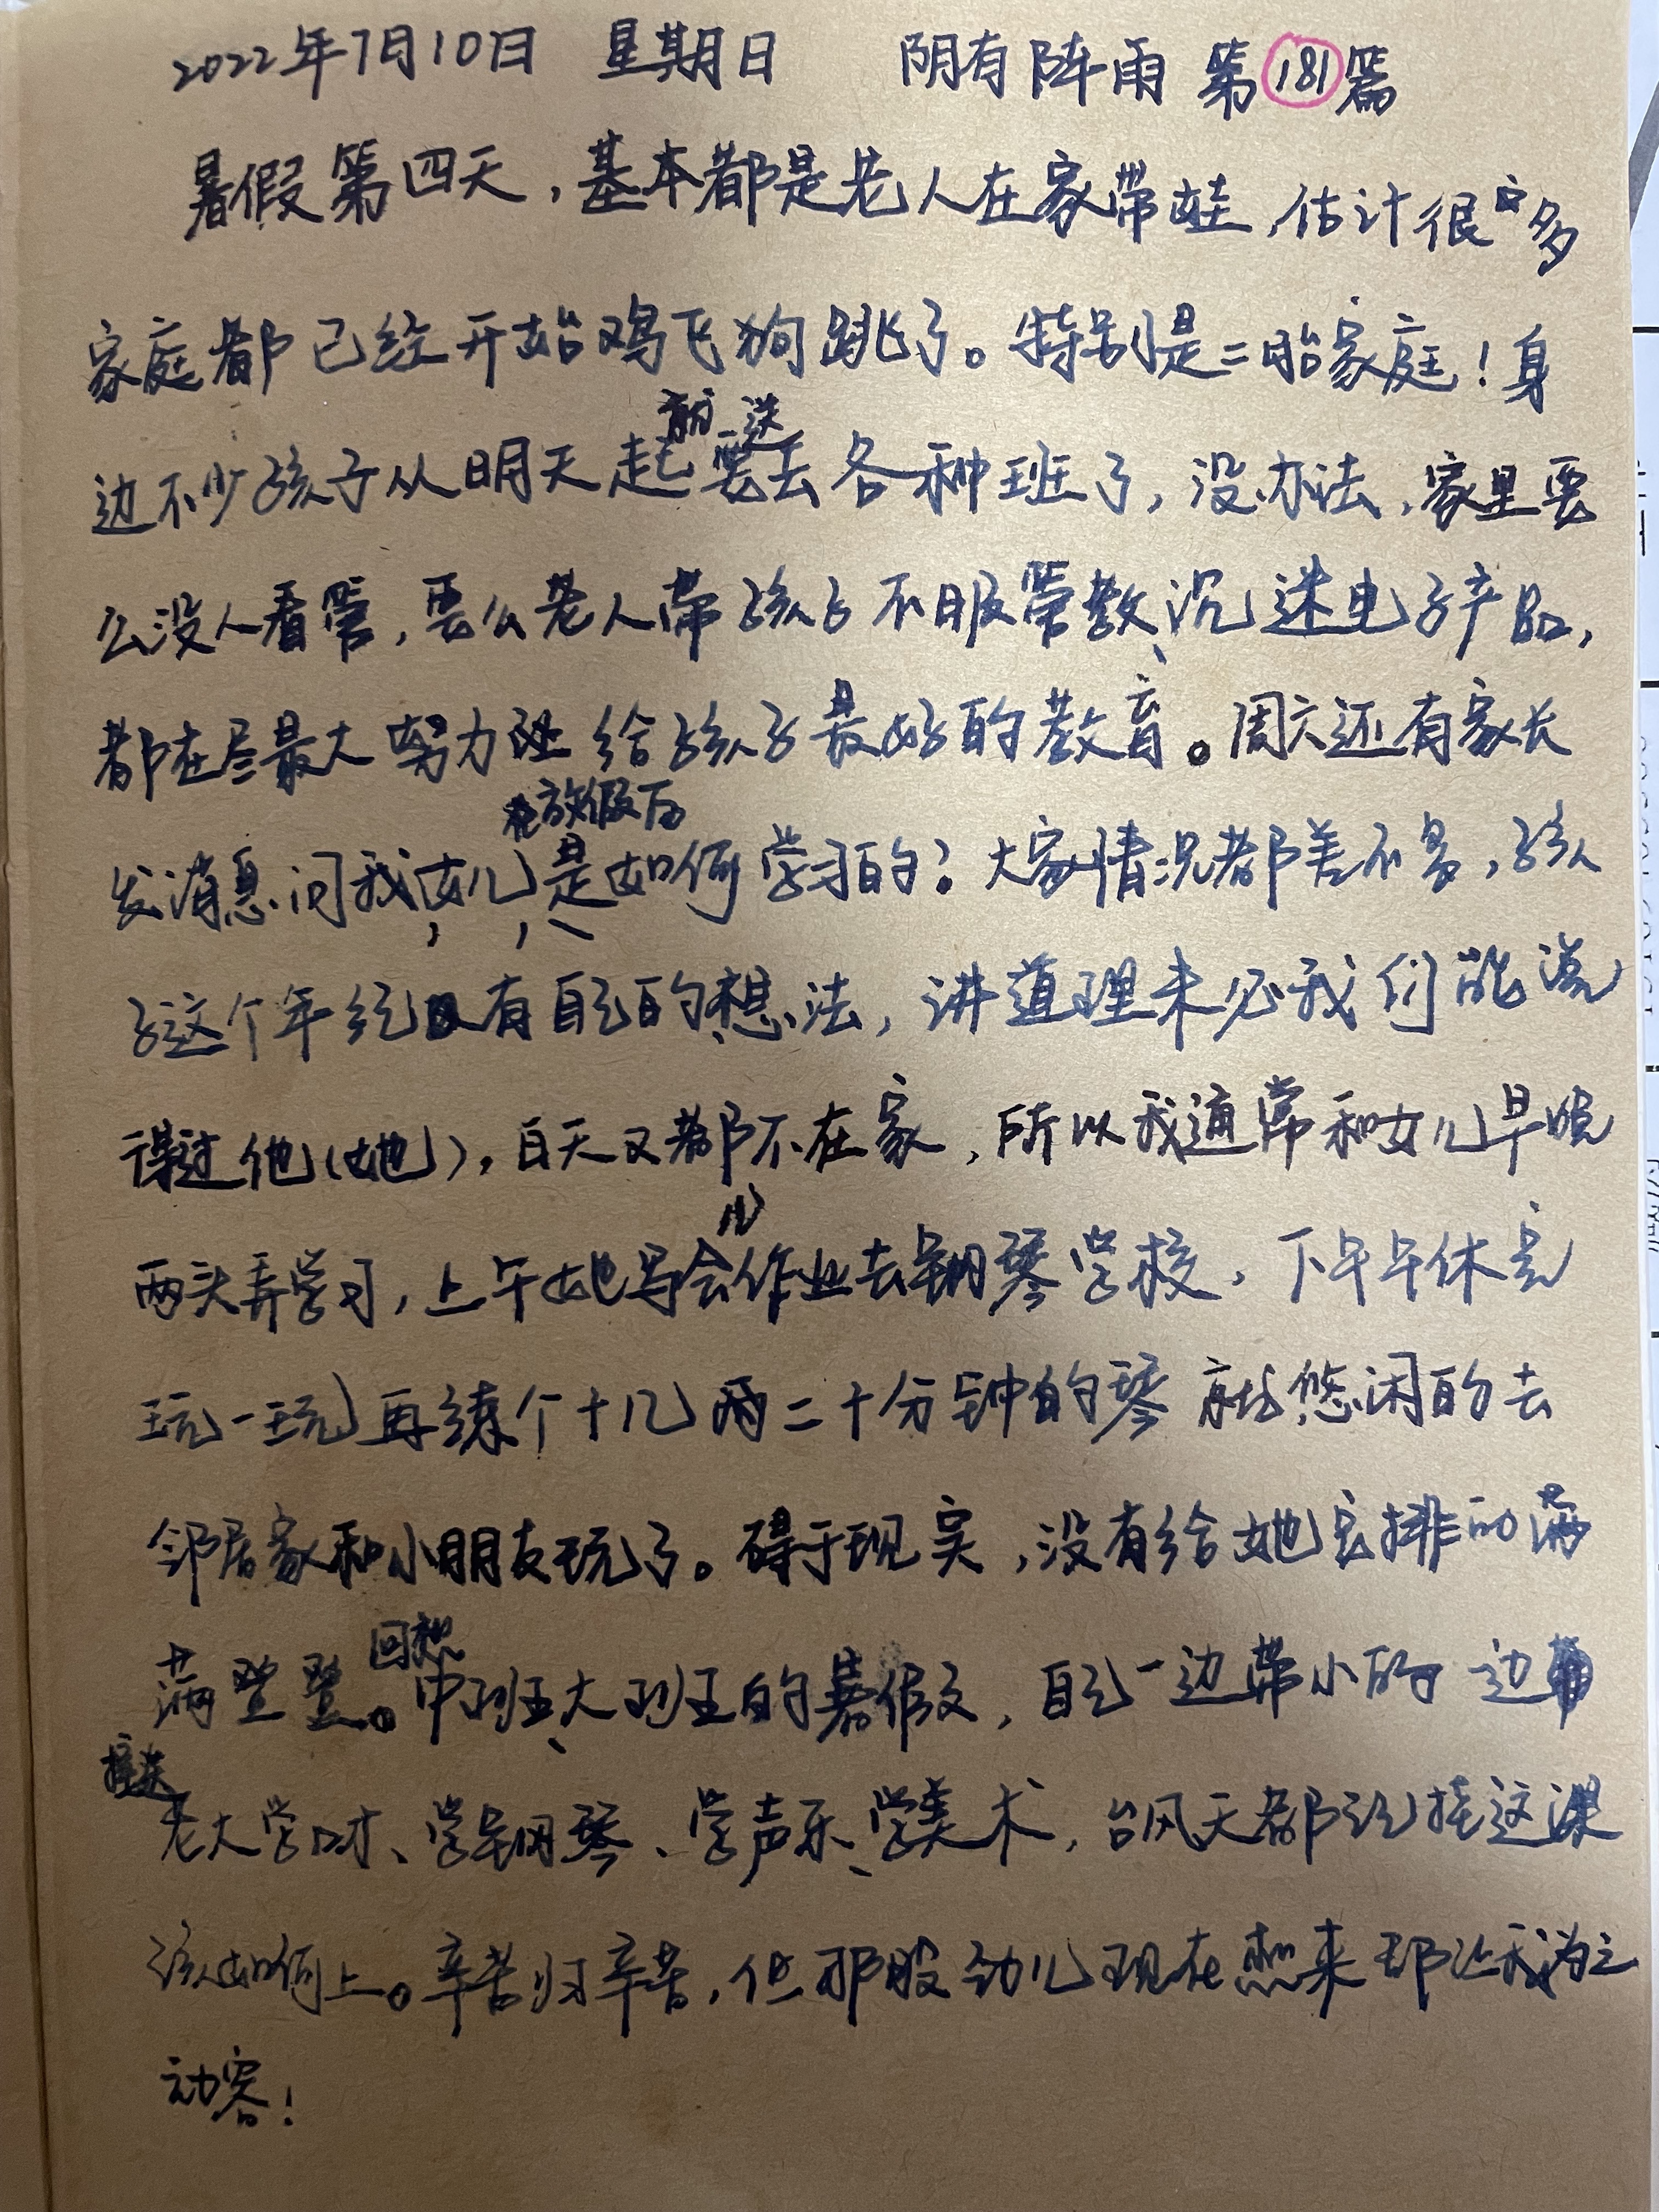 2022年7月10日 星期日 阴有阵雨 第181篇
暑假第四天，基本都是老人在家带娃，估计很多
家庭都已经开始鸡飞狗跳了。特别是二胎家庭！身
边不少孩子从明天起就要送去各种班了，没办法，家里要
么没人看管，要么老人带孩子不服管教、沉迷电子产品，
都在尽最大努力 给孩子最好的教育。周六还有家长
发消息问我女儿放假后是如何学习的？大家情况都差不多，孩
子这个年纪有自己的想法，讲道理未必我们能说
得过他（她），白天又都不在家，所以我通常和女儿早晚
两头弄学习，上午她写会儿作业去钢琴学校，下午午休完
玩一玩再练个十几两二十分钟的琴就悠闲的去
邻居家和小朋友玩了。碍于现实，没有给她安排的满
满登登。回想中班、大班的暑假，自己一边带小的一边
接送老大学口才、学钢琴、学声乐、学美术，台风天都 这课
该如何上。辛苦归辛苦，但那股劲儿现在想来都让我为之
动容！